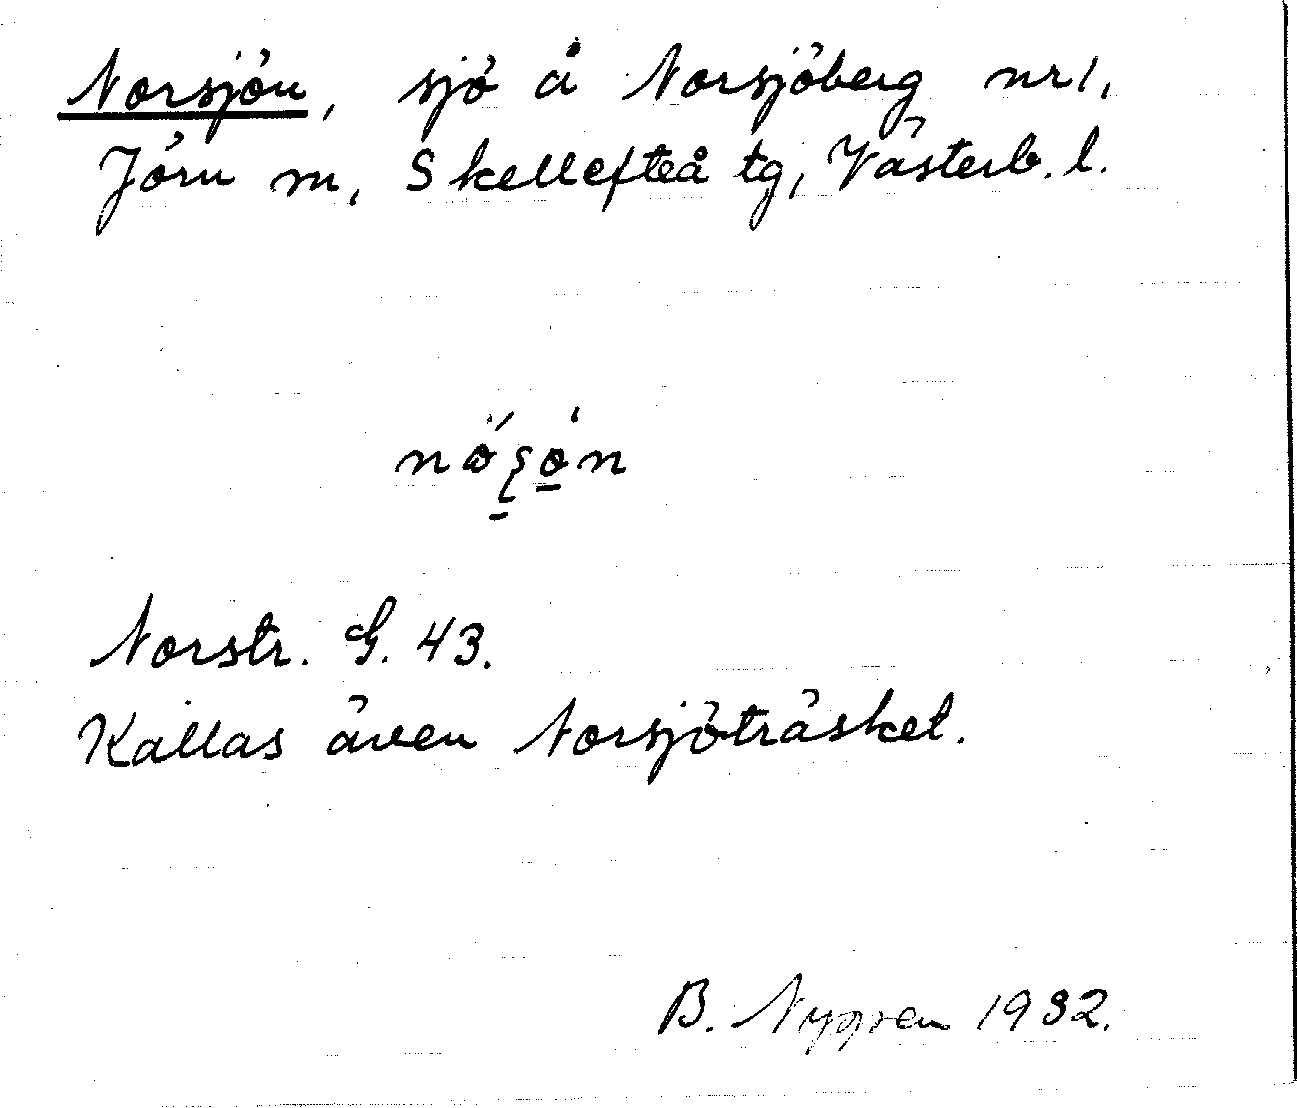 Norsjön, sjö å Norsjöberg nr 1,
Jörn m, Skellefteå tg, Västerb. l.
Norstr. G. 43.
Kallas även Norsjöträsket.
B. Nygren 1932.